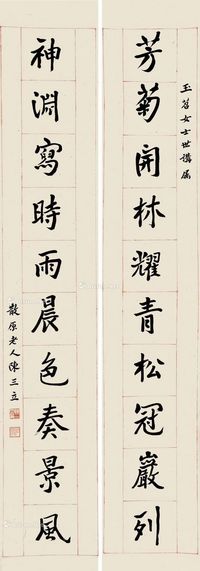 玉召女士世講屬
芳菊開林耀青松冠巖列
神淵寫時雨晨色奏景風
散原老人陳三立